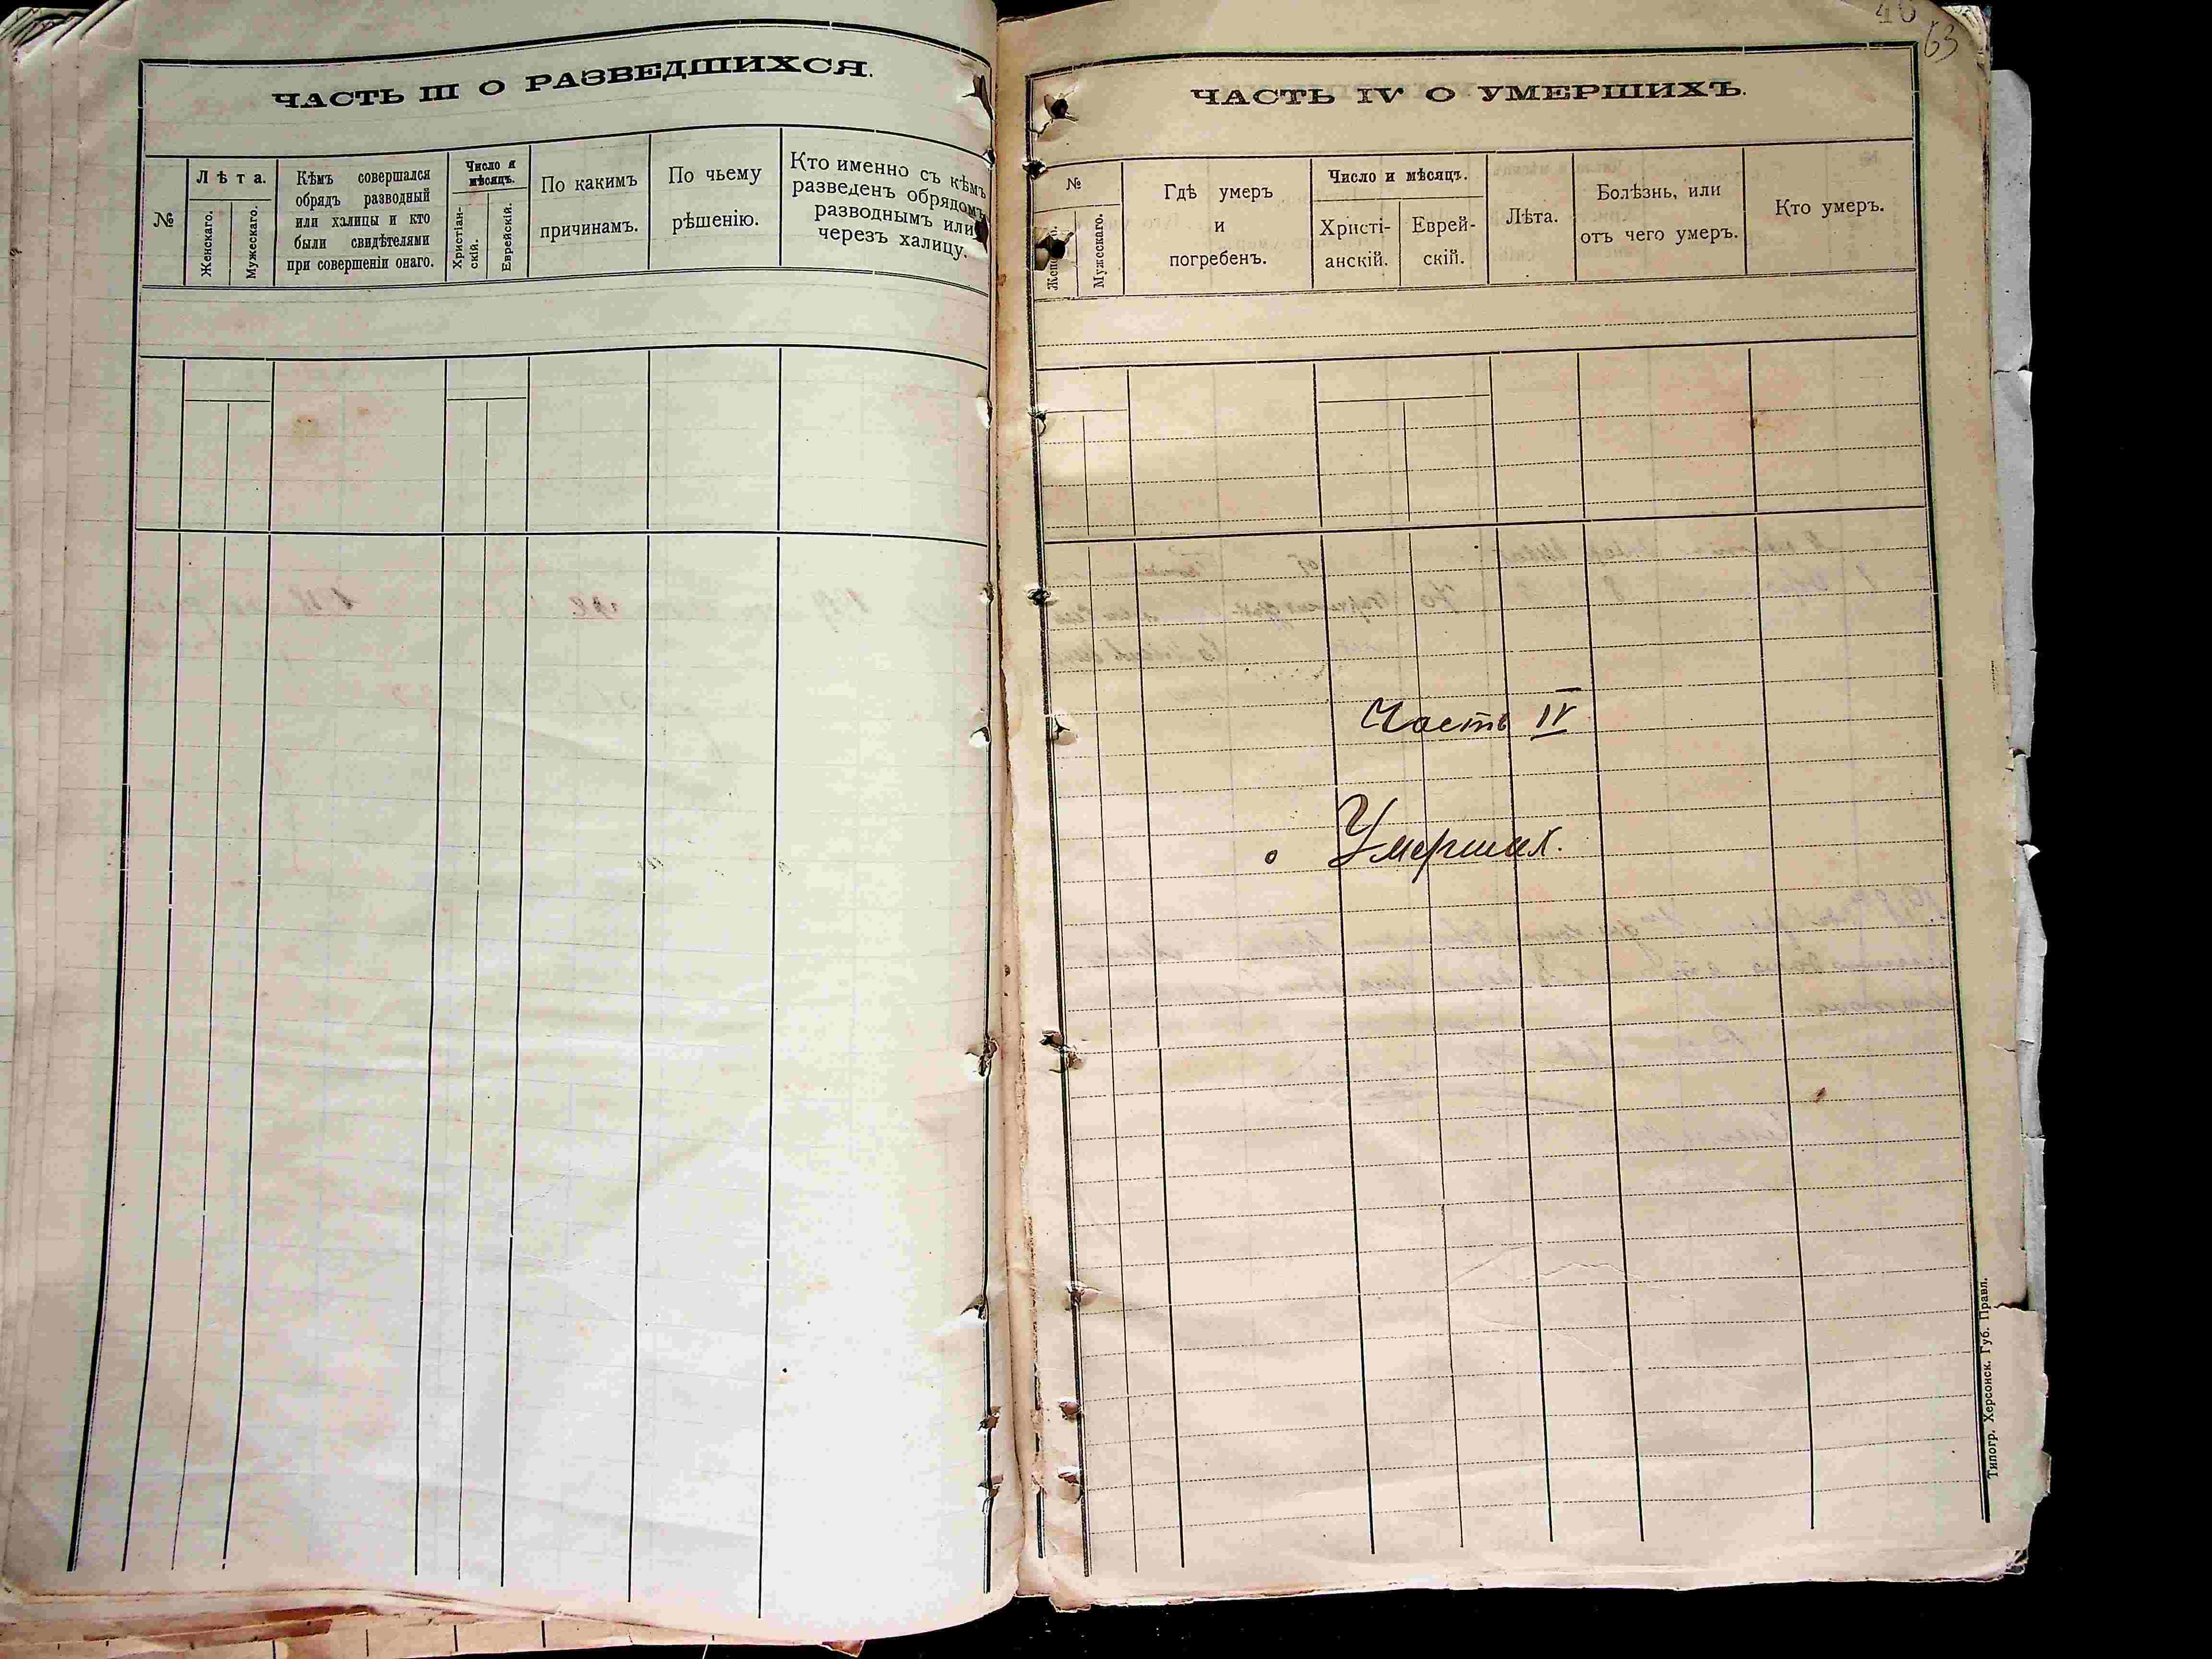 ЧАСТЬ III О РАЗВЕДШИХСЯ.
№
Лѣта.
Женскаго.
Мужескаго.
Кѣмъ совершался
обрядъ разводный
или халицы и кто
были свидѣтелями
при совершеніи онаго.
Число и
мѣсяцъ.
Христіан-
скій.
Еврейскій.
По какимъ
причинамъ.
По чьему
рѣшенію.
Кто именно съ кѣмъ
разведенъ обрядомъ
разводнымъ или
черезъ халицу.
63
ЧАСТЬ IV О УМЕРШИХЪ.
№
Мужескаго.
Гдѣ умеръ
и
погребенъ.
Число и мѣсяцъ.
Христі-
анскій.
Еврей-
скій.
Лѣта.
Болѣзнь, или
отъ чего умеръ.
Кто умеръ.
Часть IV
о Умерших.
Типогр. Херсонск. Губ. Правл.